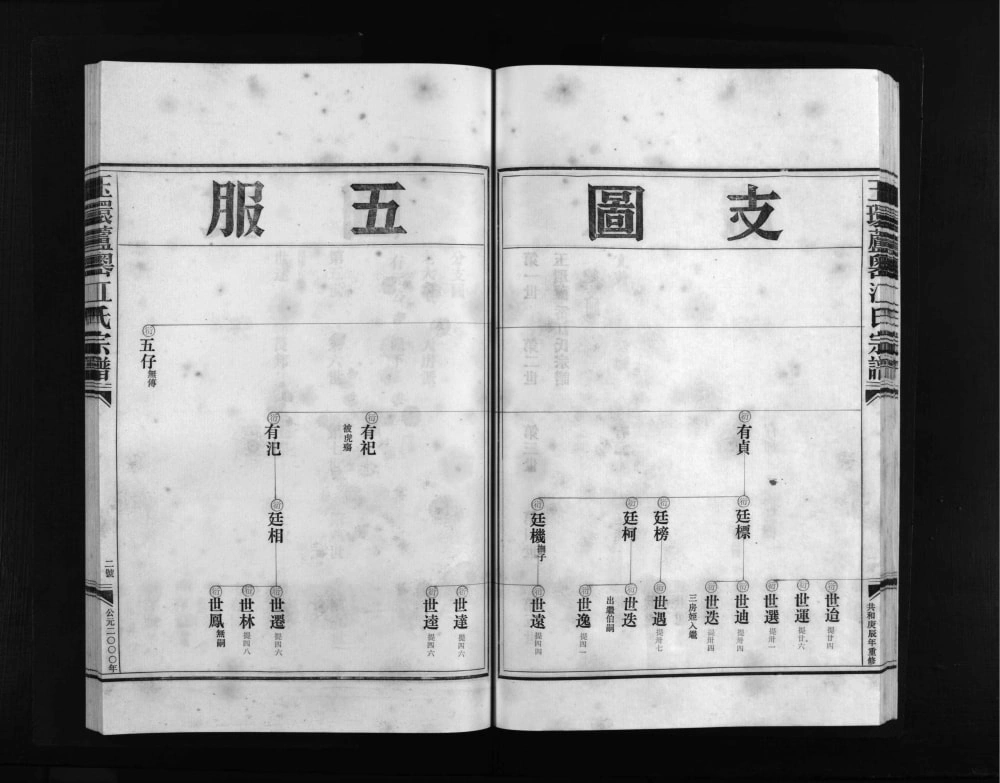 支圖五服
玉環蘆嶴江氏宗譜
共和庚辰年重修
有貞
廷標
廷榜
廷柯
廷機 撫子
世迨 提廿四
世運 提廿六
世選 提卅一
世迪 提卅四
世迭 提卅四
三房姪入繼
世遇 提卅七
世迭
出繼伯嗣
世逸 提四一
世遠 提四四
有祀
被虎殤
有汜
廷相
世達 提四六
世逵 提四六
世遷 提四六
世林 提四八
世鳳 無嗣
五仔 無傳
玉環蘆嶴江氏宗譜
二號
公元二〇〇〇年